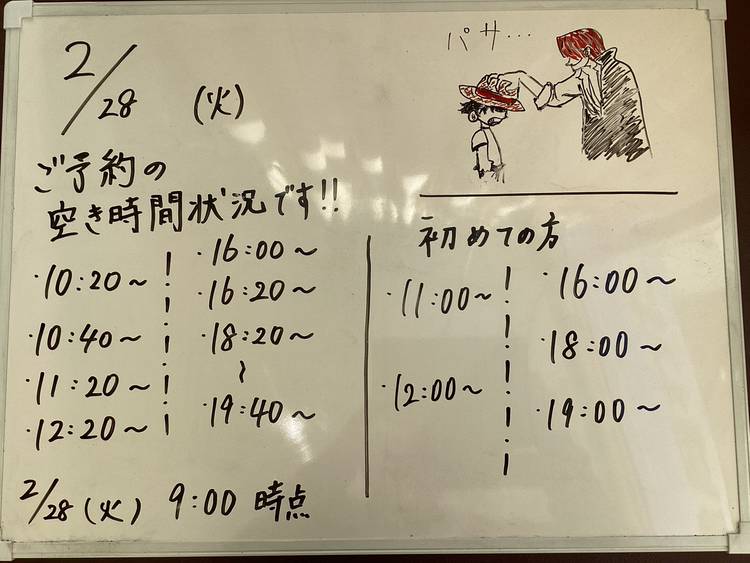 2/28 (火)
パサ…
ご予約の
空き時間状況です!!
・10:20~
・10:40~
・11:20~
・12:20~
・16:00~
・16:20~
・18:20~
~
・19:40~
初めての方
・11:00~
・12:00~
・16:00~
・18:00~
・19:00~
2/28 (火) 9:00 時点